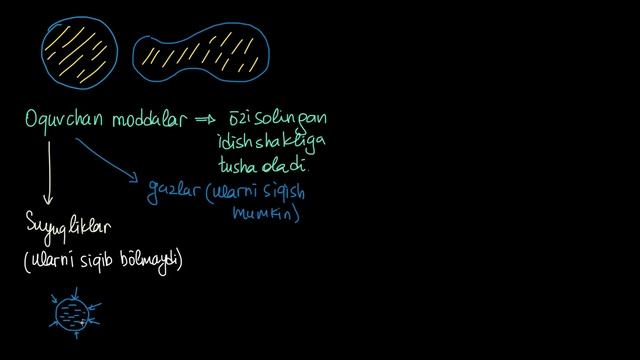 Oquvchan moddalar ⇒ õzi solingan
idish shakliga
tusha oladi.
gazlar (ularni siqish
mumkin)
Suyuqliklar
(ularni siqib bõlmaydi)